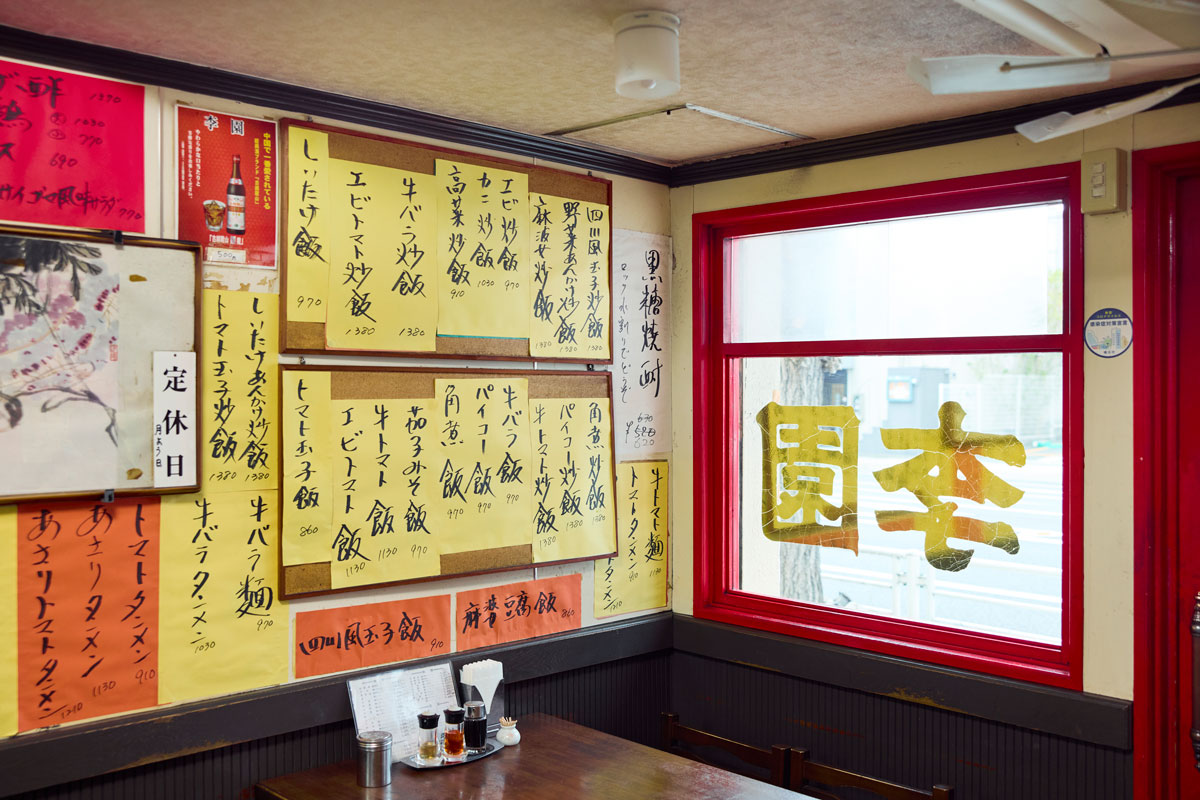 鮮 1390
1030
770
690
770
李園
中国で一番愛されている
500円
定休日
月よう日
しいたけ飯 970
エビトマト炒飯 1380
牛バラ炒飯 1380
高菜炒飯 910
カニ炒飯 1030
エビ炒飯 970
麻婆炒飯 1380
野菜あんかけ炒飯 1380
四川風玉子炒飯 1380
黒糖焼酎
ロック水割りでどうぞ
トマト玉子炒飯 1380
しいたけあんかけ炒飯 1380
トマト玉子飯 860
エビトマト飯 1130
牛トマト飯 1130
茄子みそ飯 970
角煮飯 970
パイコー飯 970
牛バラ飯 970
牛トマト炒飯 1380
パイコー炒飯 1380
角煮炒飯 1380
あさりトマトタンメン 1210
あさりタンメン 1130
トマトタンメン 910
牛バラタンメン 1030
牛バラ麺 970
四川風玉子飯 910
麻婆豆腐飯 860
トマトタンメン 1210
牛トマト麺 1130
李園